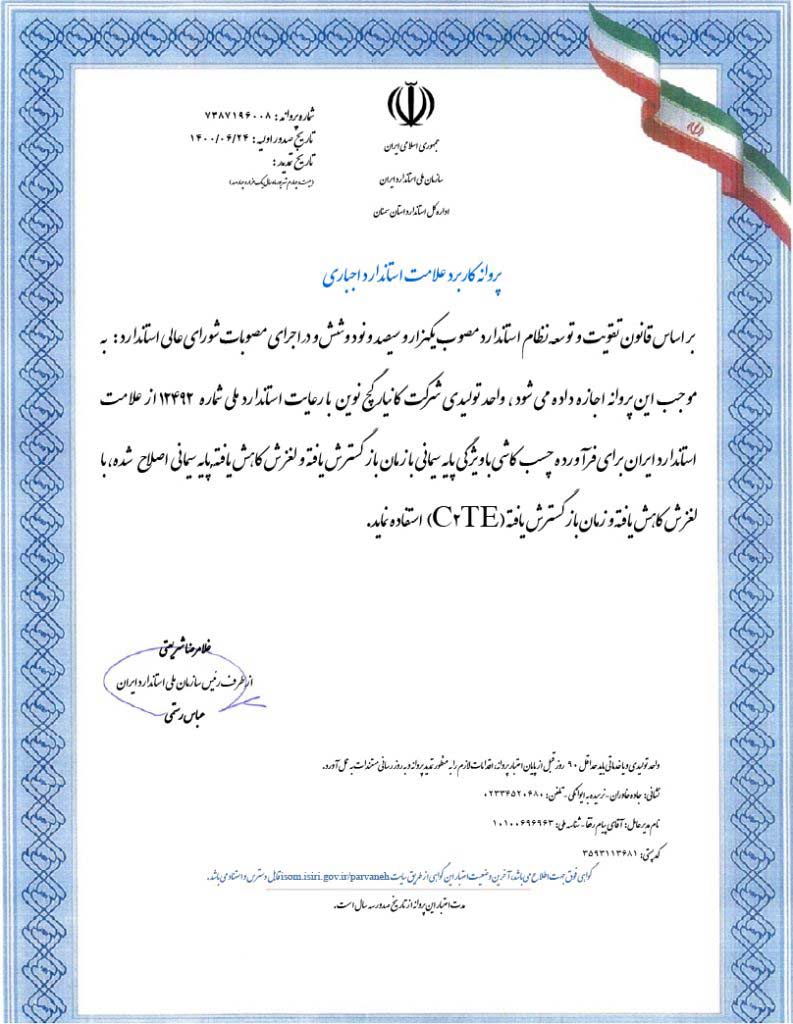 جمهوری اسلامی ایران
سازمان ملی استاندارد ایران
اداره کل استاندارد استان سمنان
شماره پروانه : ۷۳۸۷۱۹۶۰۰۸
تاریخ صدور اولیه : ۱۴۰۰/۰۶/۲۴
تاریخ تمدید :
(بیست و چهارم شهریور ماه سال یک هزار و چهارصد)
پروانه کاربرد علامت استاندارد اجباری
بر اساس قانون تقویت و توسعه نظام استاندارد مصوب یکهزار و سیصد و نود و شش و در اجرای مصوبات شورای عالی استاندارد : به
موجب این پروانه اجازه داده می شود ، واحد تولیدی شرکت کانیار گچ نوین با رعایت استاندارد ملی شماره ۱۲۴۹۲ از علامت
استاندارد ایران برای فرآورده چسب کاشی با ویژگی پایه سیمانی با زمان باز گسترش یافته و لغزش کاهش یافته, پایه سیمانی اصلاح شده، با
لغزش کاهش یافته و زمان باز گسترش یافته (C۲TE) استفاده نماید.
غلامرضا شریعتی
از طرف رئیس سازمان ملی استاندارد ایران
عباس رستمی
واحد تولیدی و یا خدماتی باید حداقل ۹۰ روز قبل از پایان اعتبار پروانه، اقدامات لازم را به منظور تمدید پروانه و به روز رسانی مستندات به عمل آورد.
نشانی: جاده خاوران - نرسیده به ایوانکی - تلفن: ۰۲۳۳۴۵۲۰۴۸۰
نام مدیر عامل: آقای پیام رفقا - شناسه ملی: ۱۰۱۰۰۶۹۶۹۶۳
کد پستی: ۳۵۹۳۱۱۳۶۸۱
گواهی فوق جهت اطلاع می باشد، آخرین وضعیت اعتبار این گواهی از طریق سایت isom.isiri.gov.ir/parvaneh قابل دسترس و استناد می باشد.
مدت اعتبار این پروانه از تاریخ صدور سه سال است.